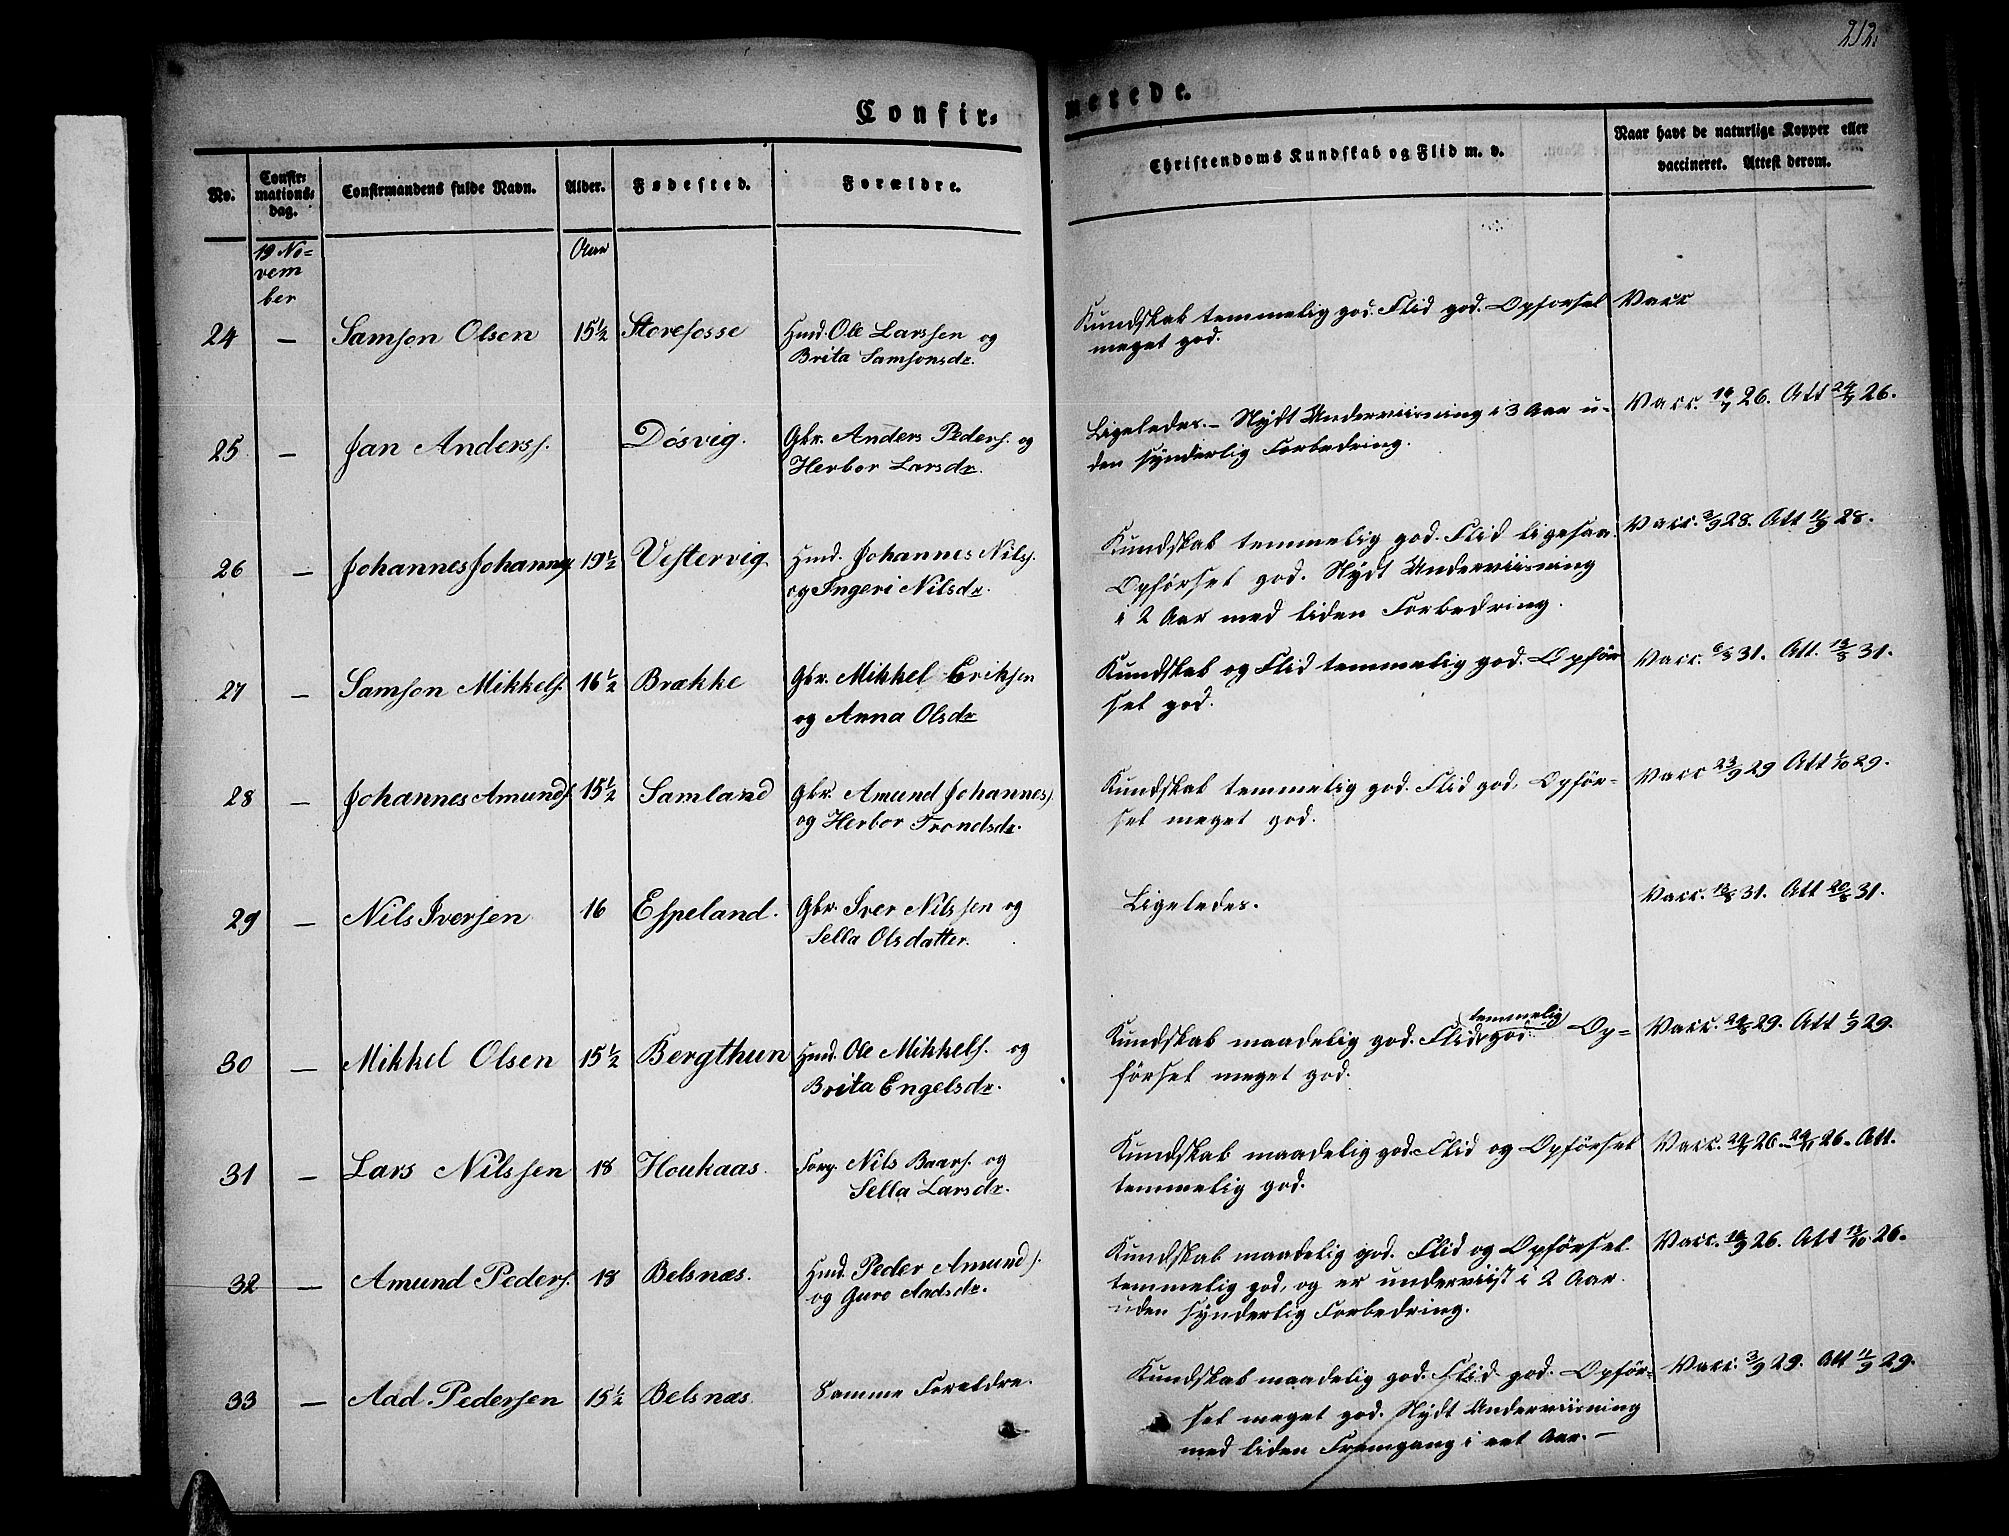 212.
Confir= merede.
No.
Confir=
mations=
dag.
Confirmandens fulde Navn.
Alder.
Fødested.
Forældre.
Christendoms Kundskab og Flid m. v.
Naar havt de naturlige Kopper eller
vaccineret. Attest derom.
19 No=
vem
ber
Aar
24 — Samson Olsen 15½ Storefosse Hmd. Ole Larssen og
Brita Samsonsdr.
Kundskab temmelig god. Flid god. Opførsel
meget god.
Vacc
25 — Jan Anderss. Dósvig. Gbr. Anders Peders. og
Herbor Larsdr.
Ligeledes. – Nydt Underviisning i 3 Aar u-
den synderlig Forbedring.
Vacc. 26. Att 26.
26 — Johannes Johannes 19½ Vestervig Hmd. Johannes Nilss.
og Ingeri Nilsdr.
Kundskab temmelig god. Flid ligesaa.
Opførsel god. Nydt Underviisning
i 2 Aar med liden Forbedring.
Vacc. 3/9 28. Att 11/9 28.
27 — Samson Mikkels. 16½ Brække Gbr. Mikkel Eriksen
og Anna Olsdr
Kundskab og Flid temmelig god. Opfør
sel god.
Vacc. 6/8 31. Att. 13/8 31.
28 — Johannes Amunds. 15½ Samland Gbr. Amund Johanness.
og Herbor Trondsdr.
Kundskab temmelig god. Flid god, Opfør-
sel meget god.
Vacc 23/9 29 Att 1/10 29.
29 — Nils Iversen 16 Espeland. Gbr. Iver Nilssen og
Sella Olsdatter.
Ligeledes.
Vacc. 13/8 31. Att 20/8 31.
30 — Mikkel Olsen 15½ Bergthun Hmd. Ole Mikkels. og
Brita Engelsdr.
temmelig
Kundskab maadelig god. Flid god. Op=
førsel meget god.
Vacc. 24/8 29. Att 1/9 29.
31 — Lars Nilssen 18 Houkaas. Forp. Nils Baars. og
Sella Larsdr.
Kundskab maadelig god. Flid og Opførsel
temmelig god.
Vacc. 26 – 26. Att.
32 — Amund Peders. 18 Belsnæs. Hmd. Peder Amunds.
og Guro Aadsdr.
Kundskab maadelig god. Flid og Opførsel
temmelig god, og er underviist i 2 Aar
uden synderlig Forbedring.
Vacc. 26. Att 26.
33 — Aad Pedersen 15½ Belsnæs. Samme Forældre.
Kundskab maadelig god. Flid god. Opfør-
sel meget god. Nydt Underviisning
med liden Fremgang i eet Aar. –
Vacc. 3/9 29. Att 11/9 29.